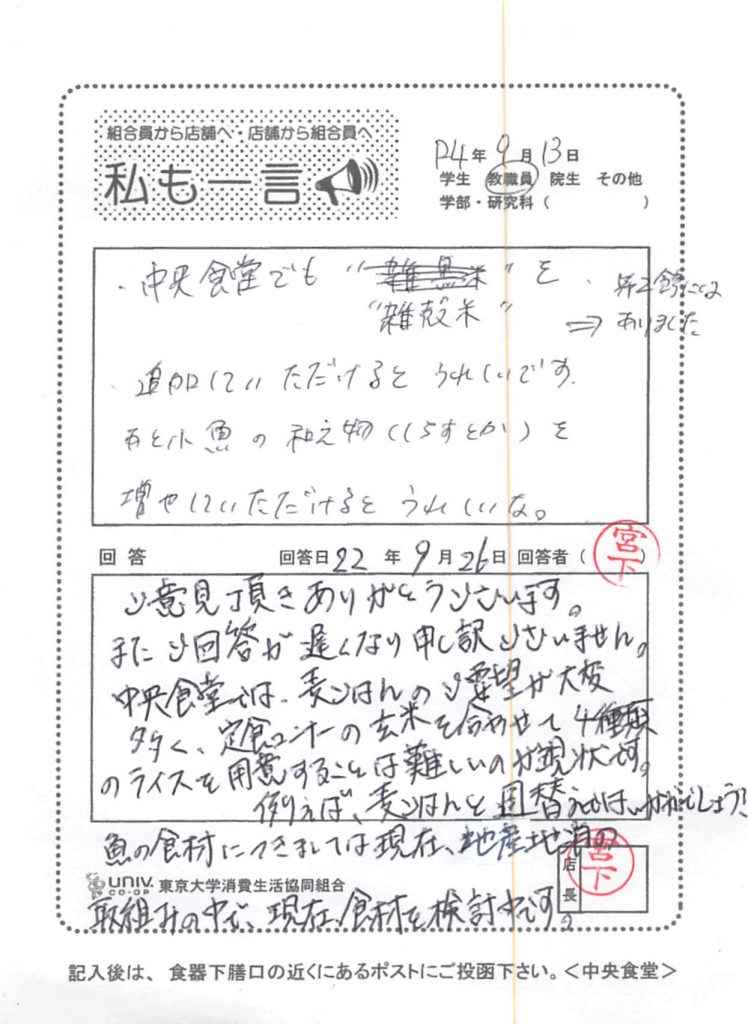 組合員から店舗へ・店舗から組合員へ
私も一言
年 9 月 13 日
学生 教職員 院生 その他
学部・研究科（ ）
・中央食堂でも " " を
"雑穀米"
・
⇒ ありました
・追加していただけるとうれしいです。
あと小魚の和え物（しらすとか）を
増やしていただけるとうれしいな。
回答 回答日 22 年 9 月 26 日 回答者（宮下）
ご意見頂きありがとうございます。
またご回答が遅くなり申し訳ございません。
中央食堂では、麦ごはんのご要望が大変
多く、定食コーナーの玄米を合わせて4種類
のライスを用意することは難しいのが現状です。
例えば、麦ごはんと 替えではいかがでしょう？
魚の食材につきましては現在、地産地消の
宮下
店長
UNIV. CO-OP 東京大学消費生活協同組合
取組みの中で、現在、食材を検討中です。
記入後は、食器下膳口の近くにあるポストにご投函下さい。＜中央食堂＞